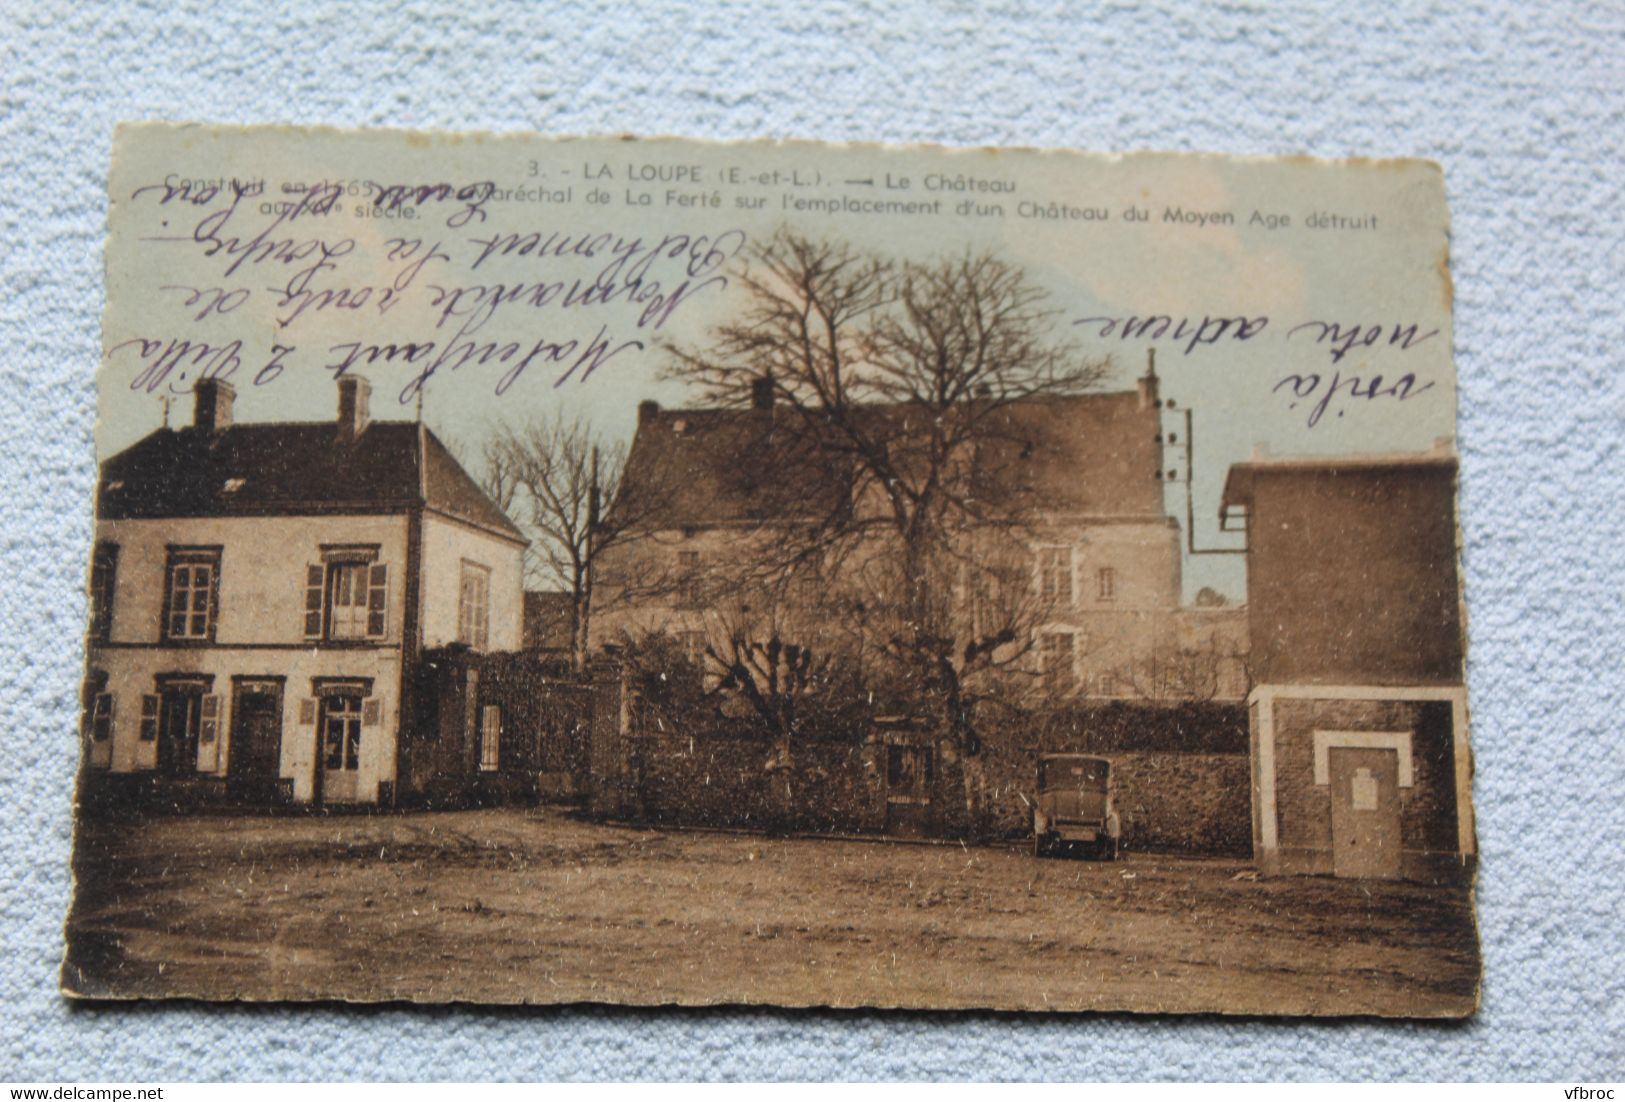 3. - LA LOUPE (E.-et-L.). — Le Château
Construit en 1665 par le Maréchal de La Ferté sur l'emplacement d'un Château du Moyen Age détruit
au XVe siècle.
voilà
notre adresse
Malenfant 2 Villa
Normande route de
Belhomert La Loupe
Eure et Loir
www.delcampe.net
vfbroc